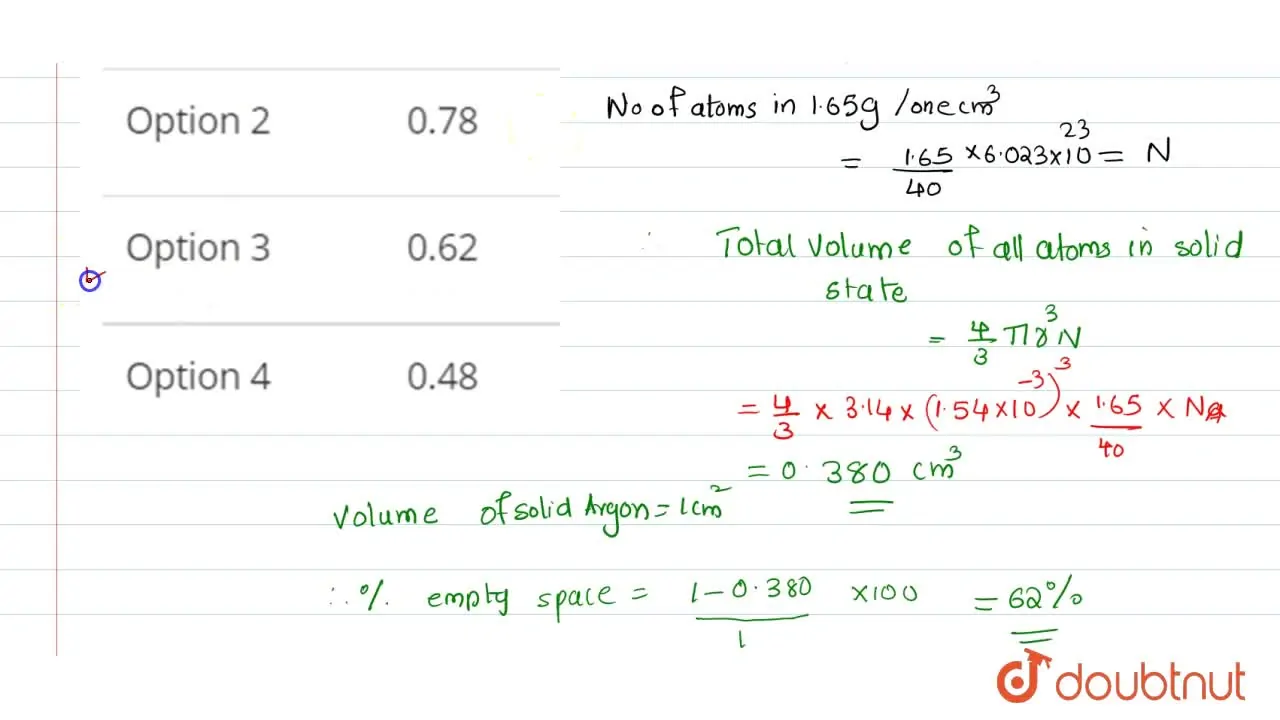 Option 2 0.78
Option 3 0.62
Option 4 0.48
No of atoms in 1.65g /one cm³
= 1.65/40 × 6.023×10²³ = N
Total volume of all atoms in solid
state
= 4/3 πr³N
= 4/3 × 3.14 × (1.54×10⁻³)³ × 1.65/40 × NA
= 0.380 cm³
Volume of solid Argon = 1cm²
∴ % empty space = 1-0.380/1 ×100 = 62%
doubtnut